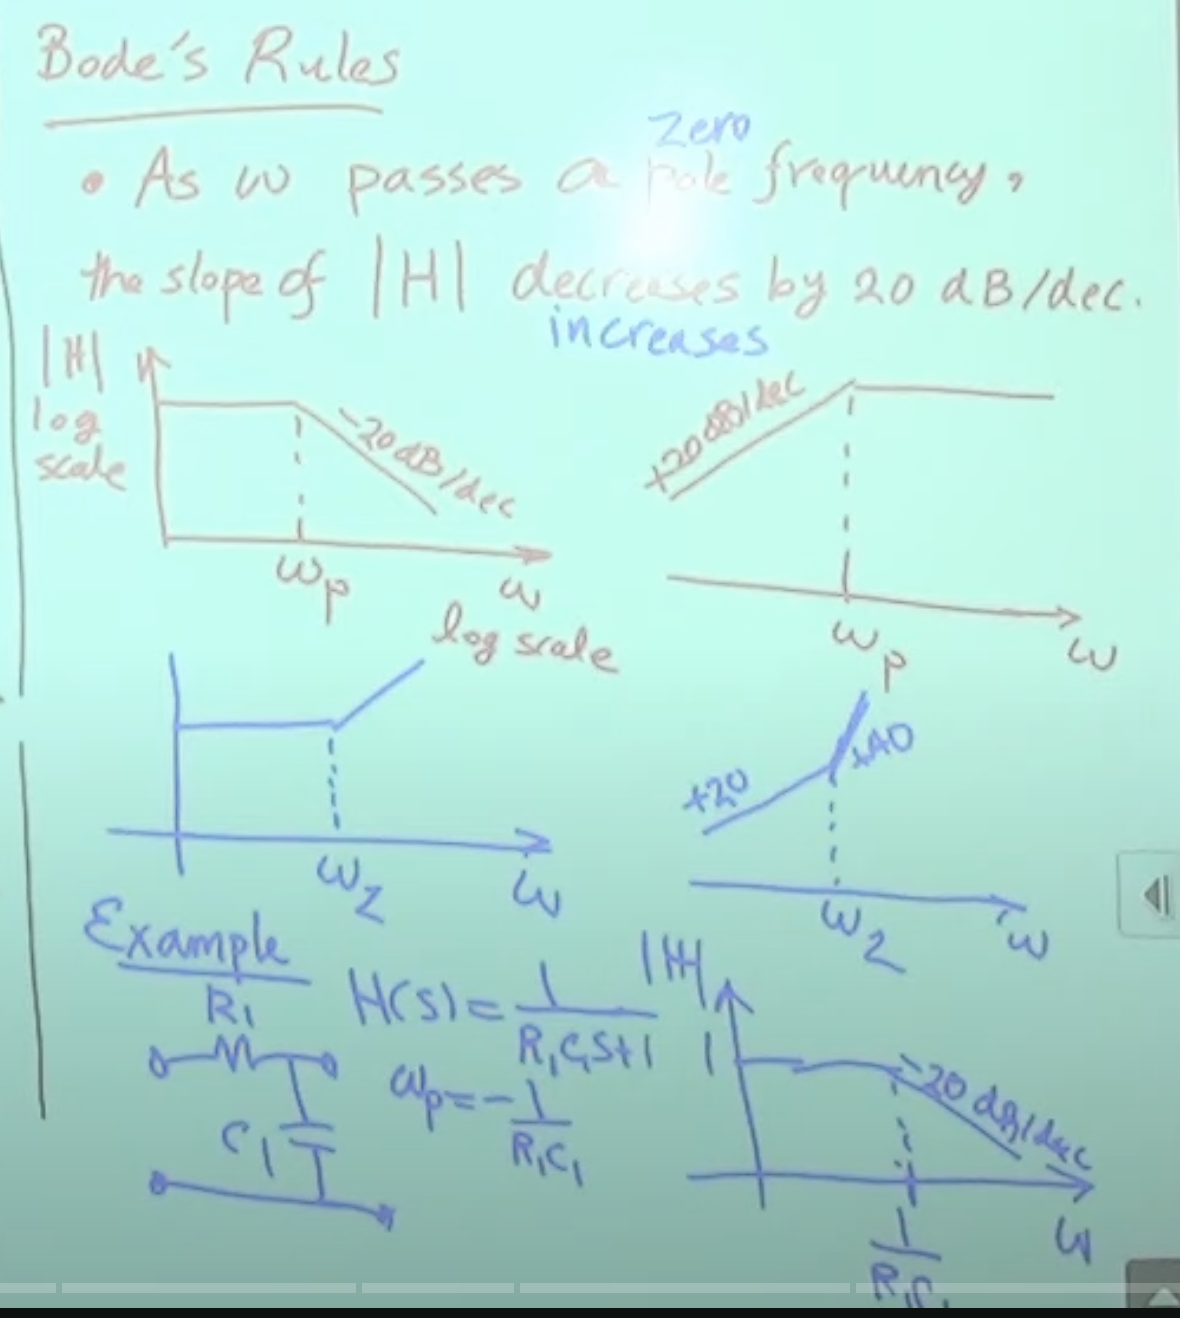 Bode's Rules
Zero
• As ω passes a pole frequency,
the slope of |H| decreases by 20 dB/dec.
increases
|H|
log
scale
-20dB/dec
ωp
ω
log scale
+20dB/dec
ωp
ω
ωz
ω
+20
+40
ωz
ω
Example
R1
C1
H(s)=1/R1C1S+1
ωp=-1/R1C1
|H|
1
-20 dB/dec
1/R1C1
ω